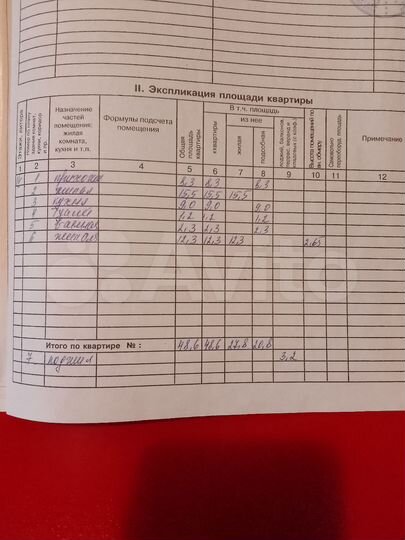 II. Экспликация площади квартиры
Этажи, литера
Назначение частей помещения: жилая комната, кухня и т.п.
Формулы подсчета помещения
Общая площадь квартиры
В т.ч. площадь
квартиры
из нее
жилая
подсобная
лоджий, балконов, террас, веранд и кладовых (с коэф.)
Высота помещений по вн. обмеру
Самовольно переоборуд. площадь
Примечание
1 2 3 4 5 6 7 8 9 10 11 12
1 прихожая 8,3 8,3 8,3
2 жилая 15,5 15,5 15,5
3 кухня 9,0 9,0 9,0
4 туалет 1,2 1,2 1,2
5 ванная 2,3 2,3 2,3
6 жилая 12,3 12,3 12,3 2,65
Итого по квартире № : 48,6 48,6 27,8 20,8
7 лоджия 3,2
Avito